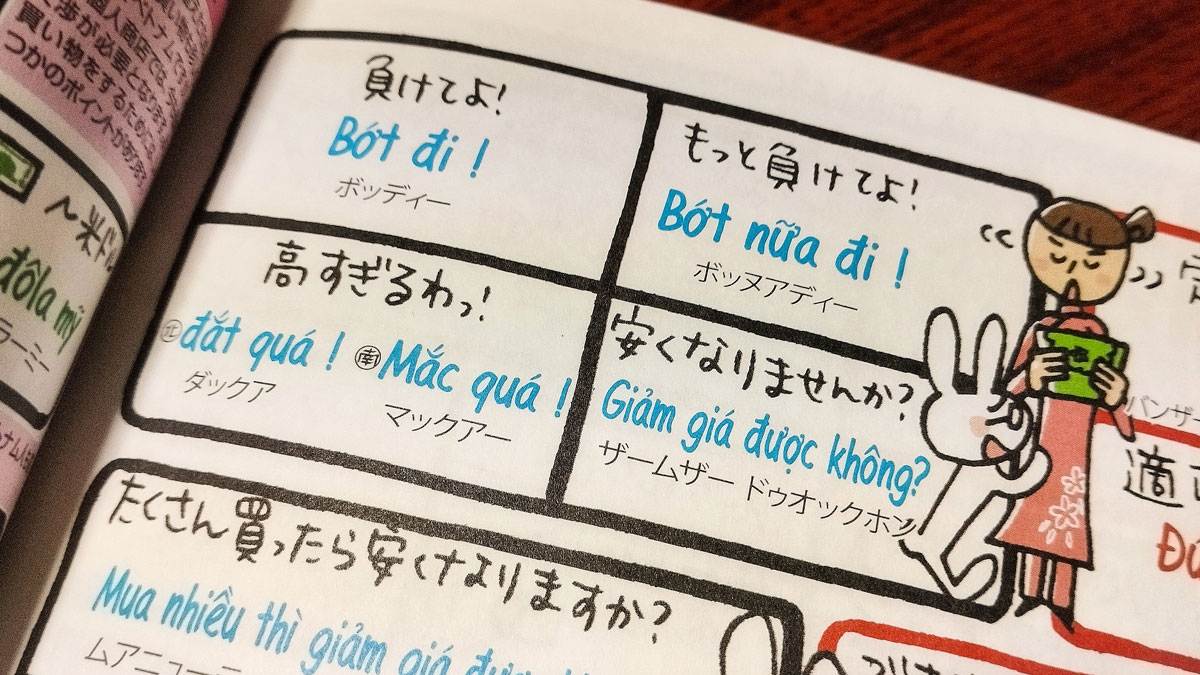 買い物をするために
つかのポイントがあ
〜米ドル
đôla mỹ
ラーミー
負けてよ!
Bớt đi !
ボッディー
もっと負けてよ!
Bớt nữa đi !
ボッヌアディー
高すぎるわっ!
北 đắt quá ! 南 Mắc quá !
ダックア マックアー
安くなりませんか?
Giảm giá được không?
ザームザー ドゥオックホン
たくさん買ったら安くなりますか?
Mua nhiều thì giảm giá
ムアニュー
バンザー
適